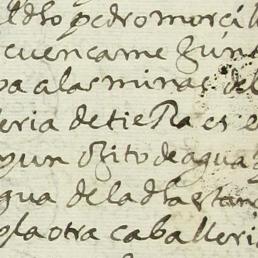 el dho pedro morcill
cuencame y un
pa a las minas del
leria de tierra es e
y un ojito de agua
gua de la dha stan
pla otra caballeri